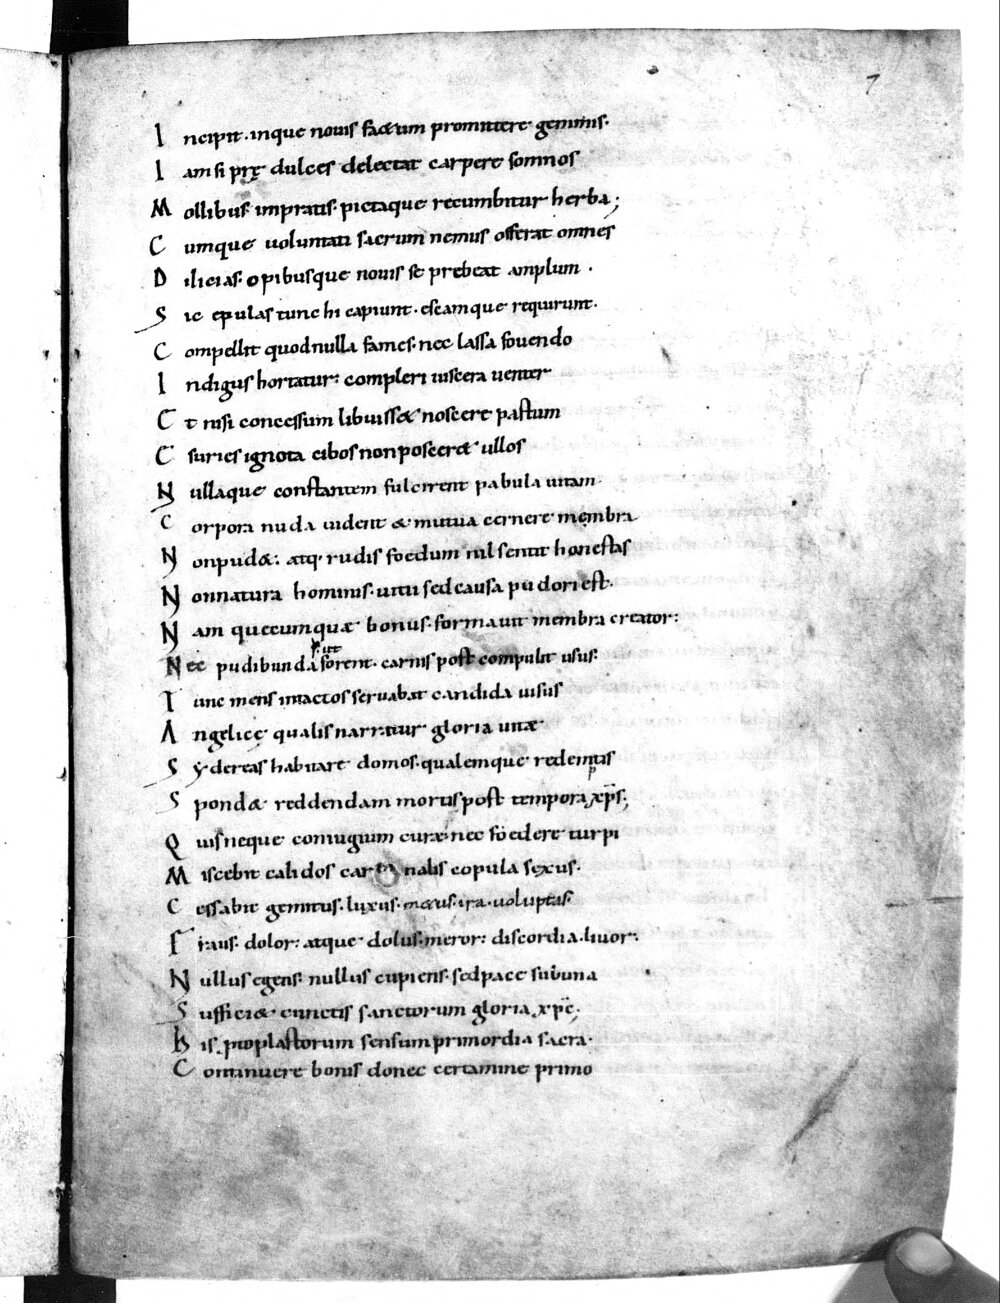 7
Incipit. inque nouis fac&um promittere gemmis.
Iam si prę dulces delectat carpere somnos
Mollibus inpratis. pictaque recumbitur herba;
Cumque uoluntati sacrum nemus offerat omnes
Dilicias. opibusque nouis se prebeat amplum.
Sic epulas tunc hi capiunt. escamque requirunt.
Compellit quod nulla fames. nec lassa fouendo
Indigus hortatur: compleri uiscera uenter
Et nisi concessum libuiss& noscere pastum
Esuries ignota cibos non poscer& ullos
Nullaque constantem fulcirent pabula uitam.
Corpora nuda uident & mutua cernere membra
Non pud&: atq; rudis foedum nil sentit honestas
Non natura hominis. uitii sed causa pudori est.
Nam quecumquæ bonus. formauit membra creator:
Nec pudibunda forent. carnis post compulit usus.
Tunc mens intactos seruabat candida uisus
Angelicę qualis narratur gloria uitæ
Sydereas habitare domos. qualemque redemptis
Spond& reddendam mortis post tempora xp̄s;
Quis neque coniugium curæ nec foedere turpi
Miscebit calidos carnalis copula sexus.
Cessabit gemitus. luxus. metus. ira. uoluptas.
Fraus. dolor: atque dolus. meror: discordia. liuor:
Nullus egens. nullus cupiens. sed pace sub una
Suffici& cunctis sanctorum gloria xp̄c;
His protoplastorum sensum primordia sacra.
Continuere bonis donec certamine primo